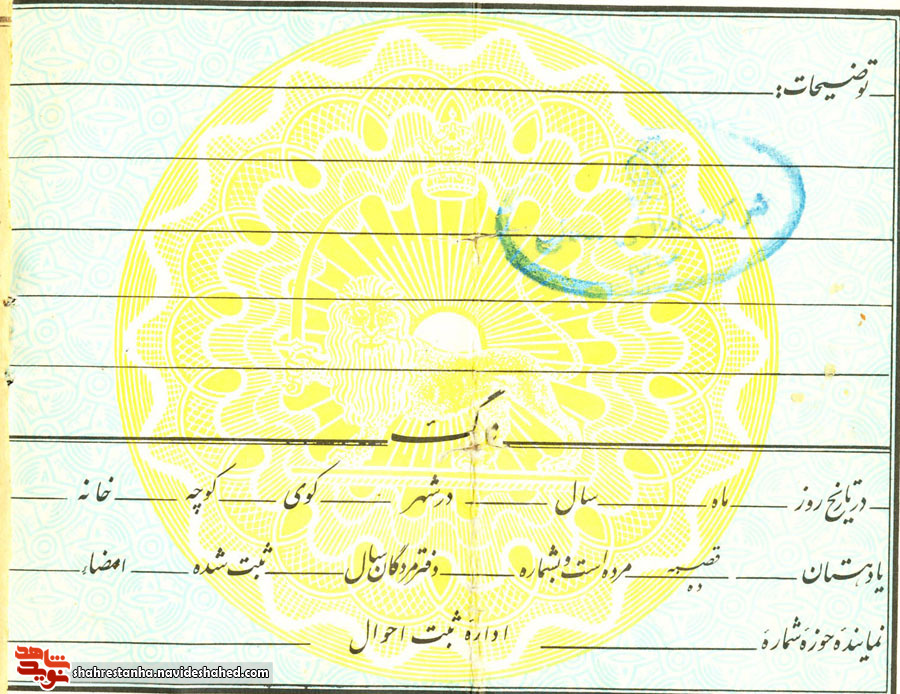 توضیحات:
مرگ
در تاریخ روز ماه سال در شهر کوی کوچه خانه
یا دهستان قصبه ده مرده است و بشماره دفتر مردگان سال ثبت شده امضاء
نمایندهٔ حوزهٔ شمارهٔ ادارهٔ ثبت احوال
نوید شاهد
shahrestanha.navideshahed.com